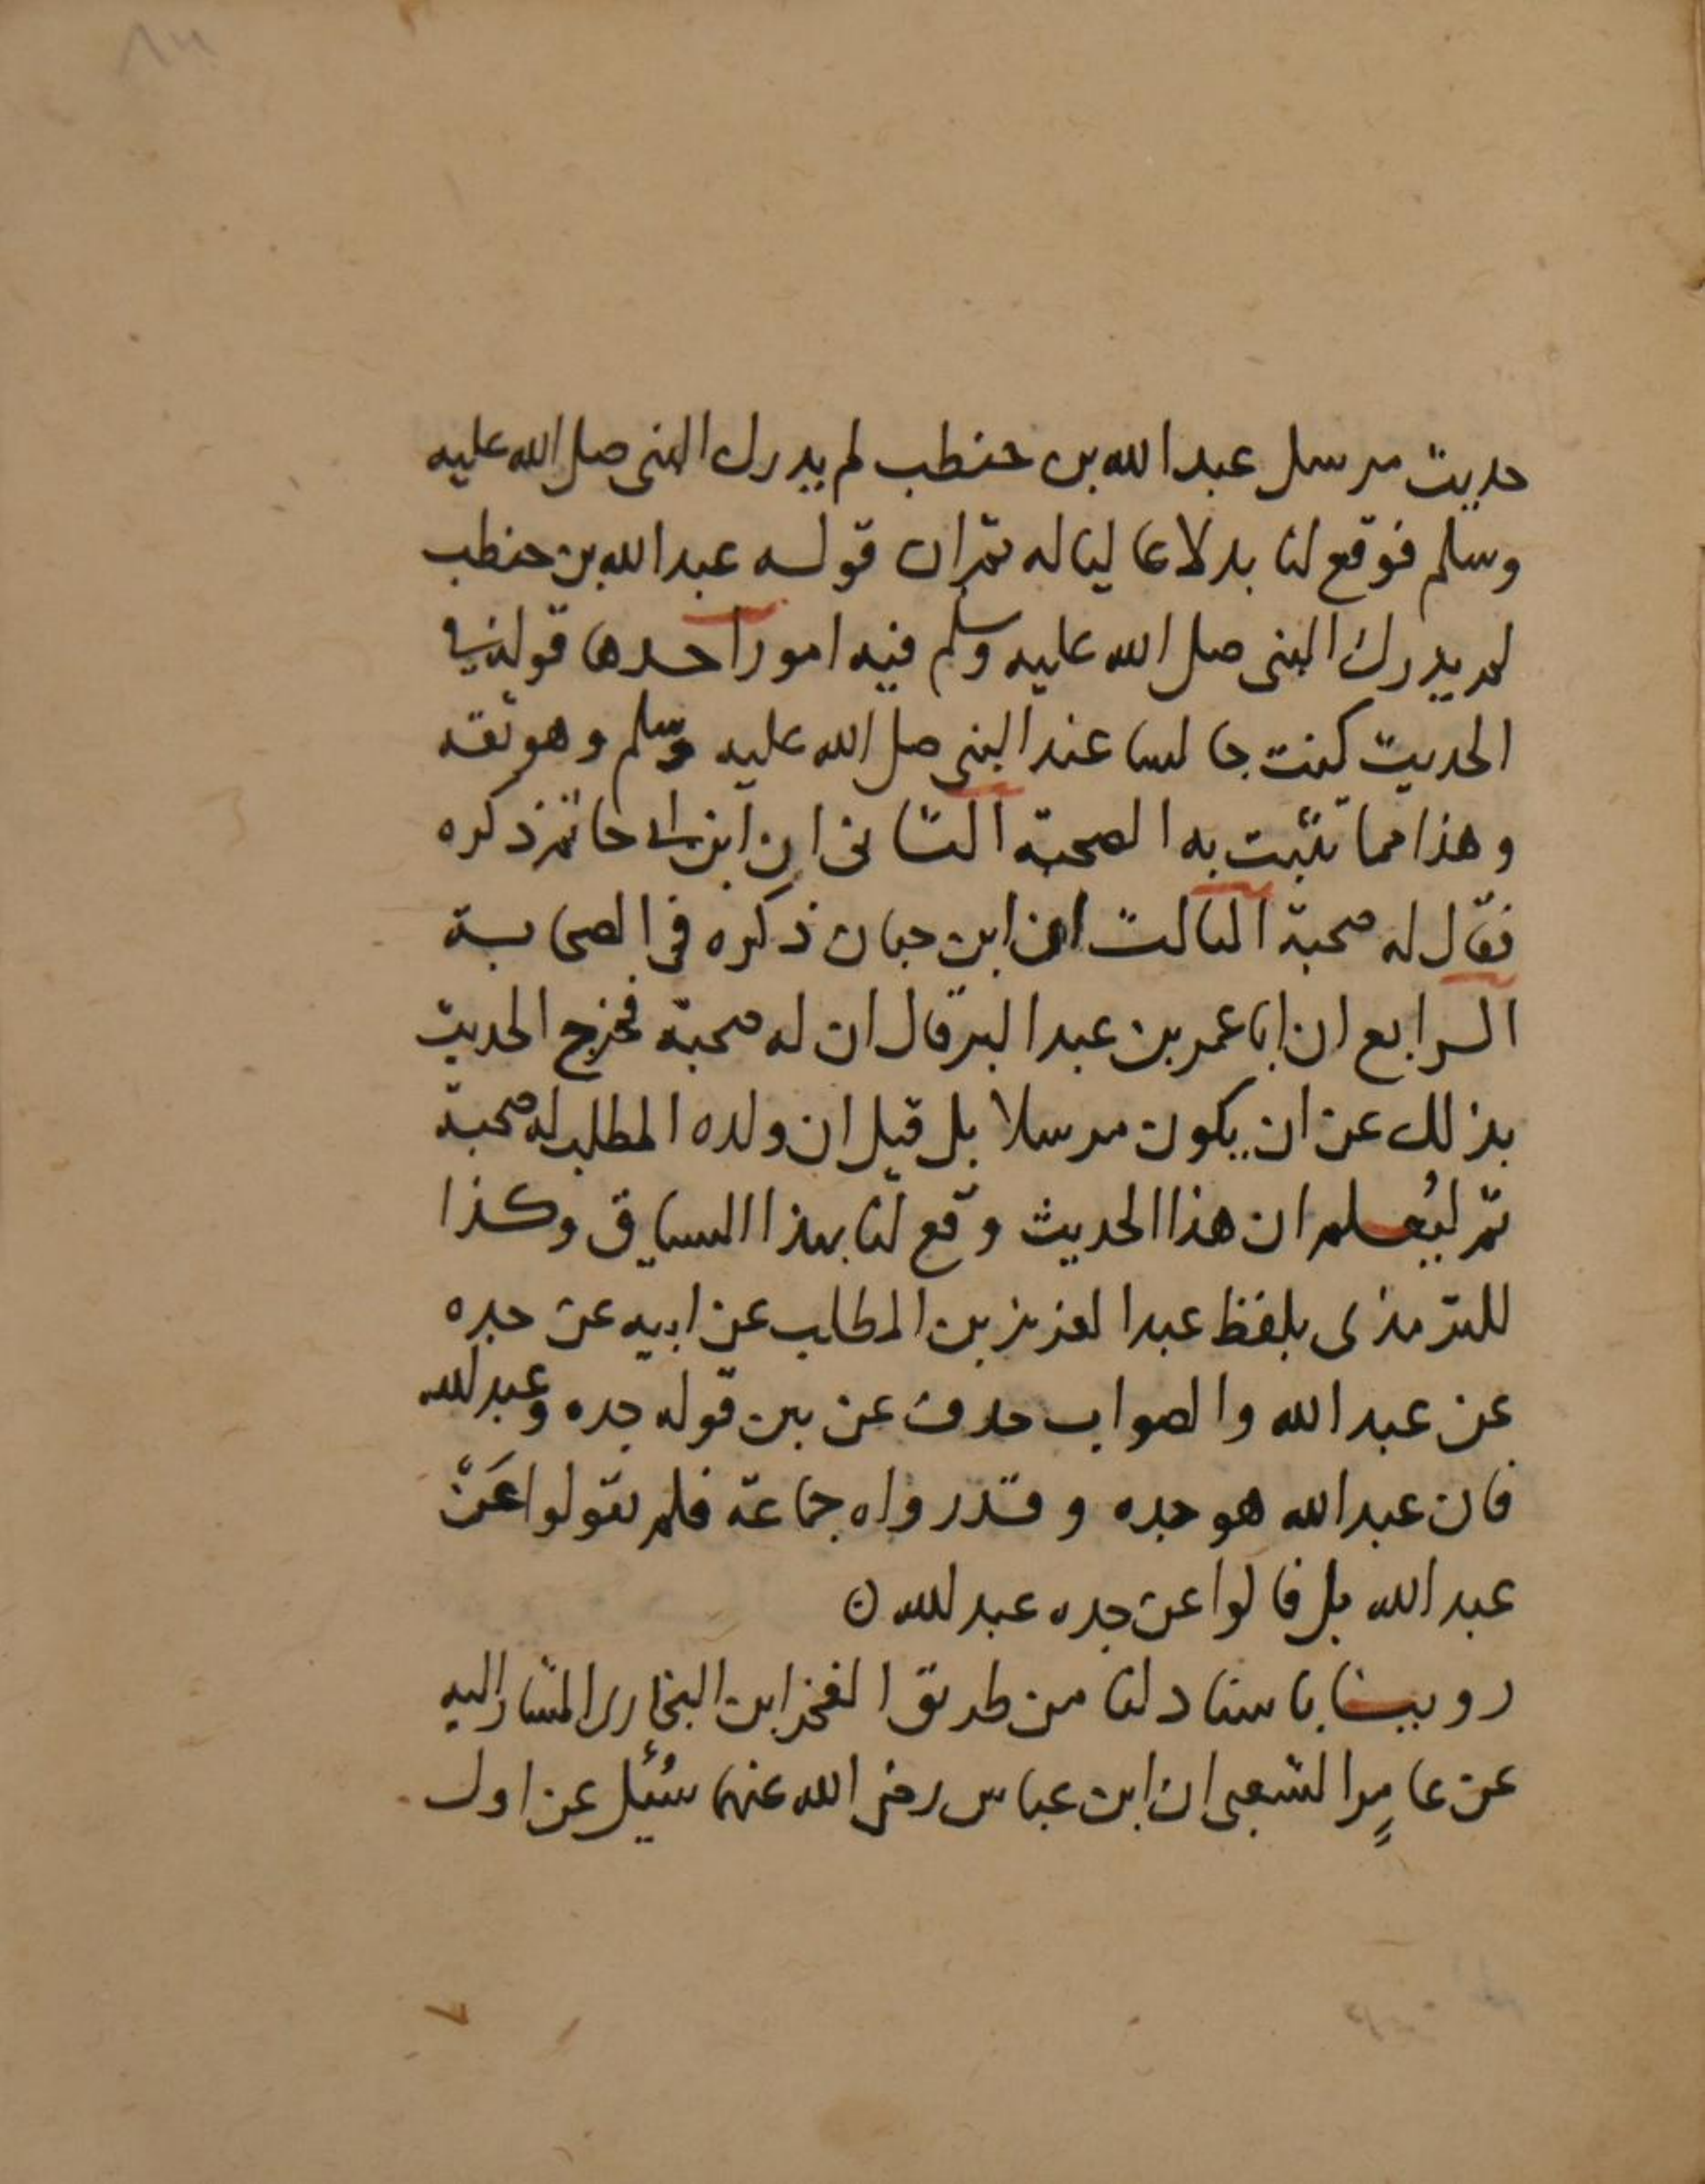 حديث مرسل عبد الله بن حنطب لم يدرك النبى صلى الله عليه
وسلم فوقع لنا بدلا عاليا له ثم ان قوله عبد الله بن حنطب
لم يدرك النبى صلى الله عليه وسلم فيه امور احدها قوله فى
الحديث كنت جالسا عند النبى صلى الله عليه وسلم وهو ثقه
وهذا مما تثبت به الصحبة الثانى ان ابن ابى حاتم ذكره
فقال له صحبة الثالث ان ابن حبان ذكره فى الصحابة
الرابع ان ابا عمر بن عبد البر قال ان له صحبة فخرج الحديث
بذلك عن ان يكون مرسلا بل قيل ان ولده المطلب له صحبة
ثم ليُعلم ان هذا الحديث وقع لنا بهذا السياق وكذا
للترمذى بلفظ عبد العزيز بن المطلب عن ابيه عن جده
عن عبد الله والصواب حذف عن بين قوله جده وعبد الله
فان عبد الله هو جده وقد رواه جماعة فلم يقولوا عَنْ
عبد الله بل قالوا عن جده عبد الله ن
روينا باسناد لنا من طريق الفخر ابن البخارى المشار اليه
عن عامرٍ الشعبى ان ابن عباس رضى الله عنهما سُئل عن اول